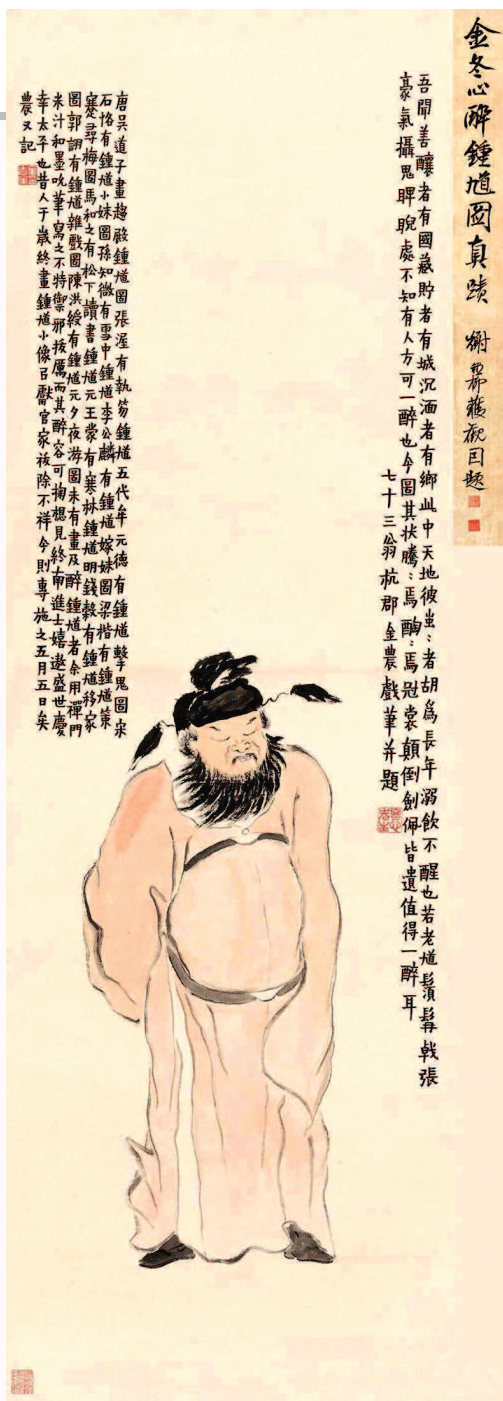 金冬心醉鍾馗圖真蹟
獲觀因題
吾聞善釀者有國藏貯者有城沉湎者有鄉此中天地彼蚩:者胡為長年溺飲不醒也若老馗鬚髯戟張
豪氣攝鬼睥睨處不知有人方可一醉也今圖其狀騰:焉酶:焉冠裳顛倒劍佩皆遺值得一醉耳
七十三翁杭郡金農戲筆并題
唐吳道子畫趨殿鍾馗圖張渥有執笏鍾馗五代牟元德有鍾馗擊鬼圖宋
石恪有鍾馗小妹圖孫知微有雪中鍾馗李公麟有鍾馗嫁妹圖梁楷有鍾馗策
蹇尋梅圖馬和之有松下讀書鍾馗元王蒙有寒林鍾馗明錢穀有鍾馗移家
圖郭詡有鍾馗雜戲圖陳洪綬有鍾馗元夕夜游圖未有畫及醉鍾馗者余用禪門
米汁和墨吮筆寫之不特禦邪拔厲而其醉容可掬想見終南進士嬉遨盛世慶
幸太平也昔人于歲終畫鍾馗小像以獻官家祓除不祥今則專施之五月五日矣
農又記